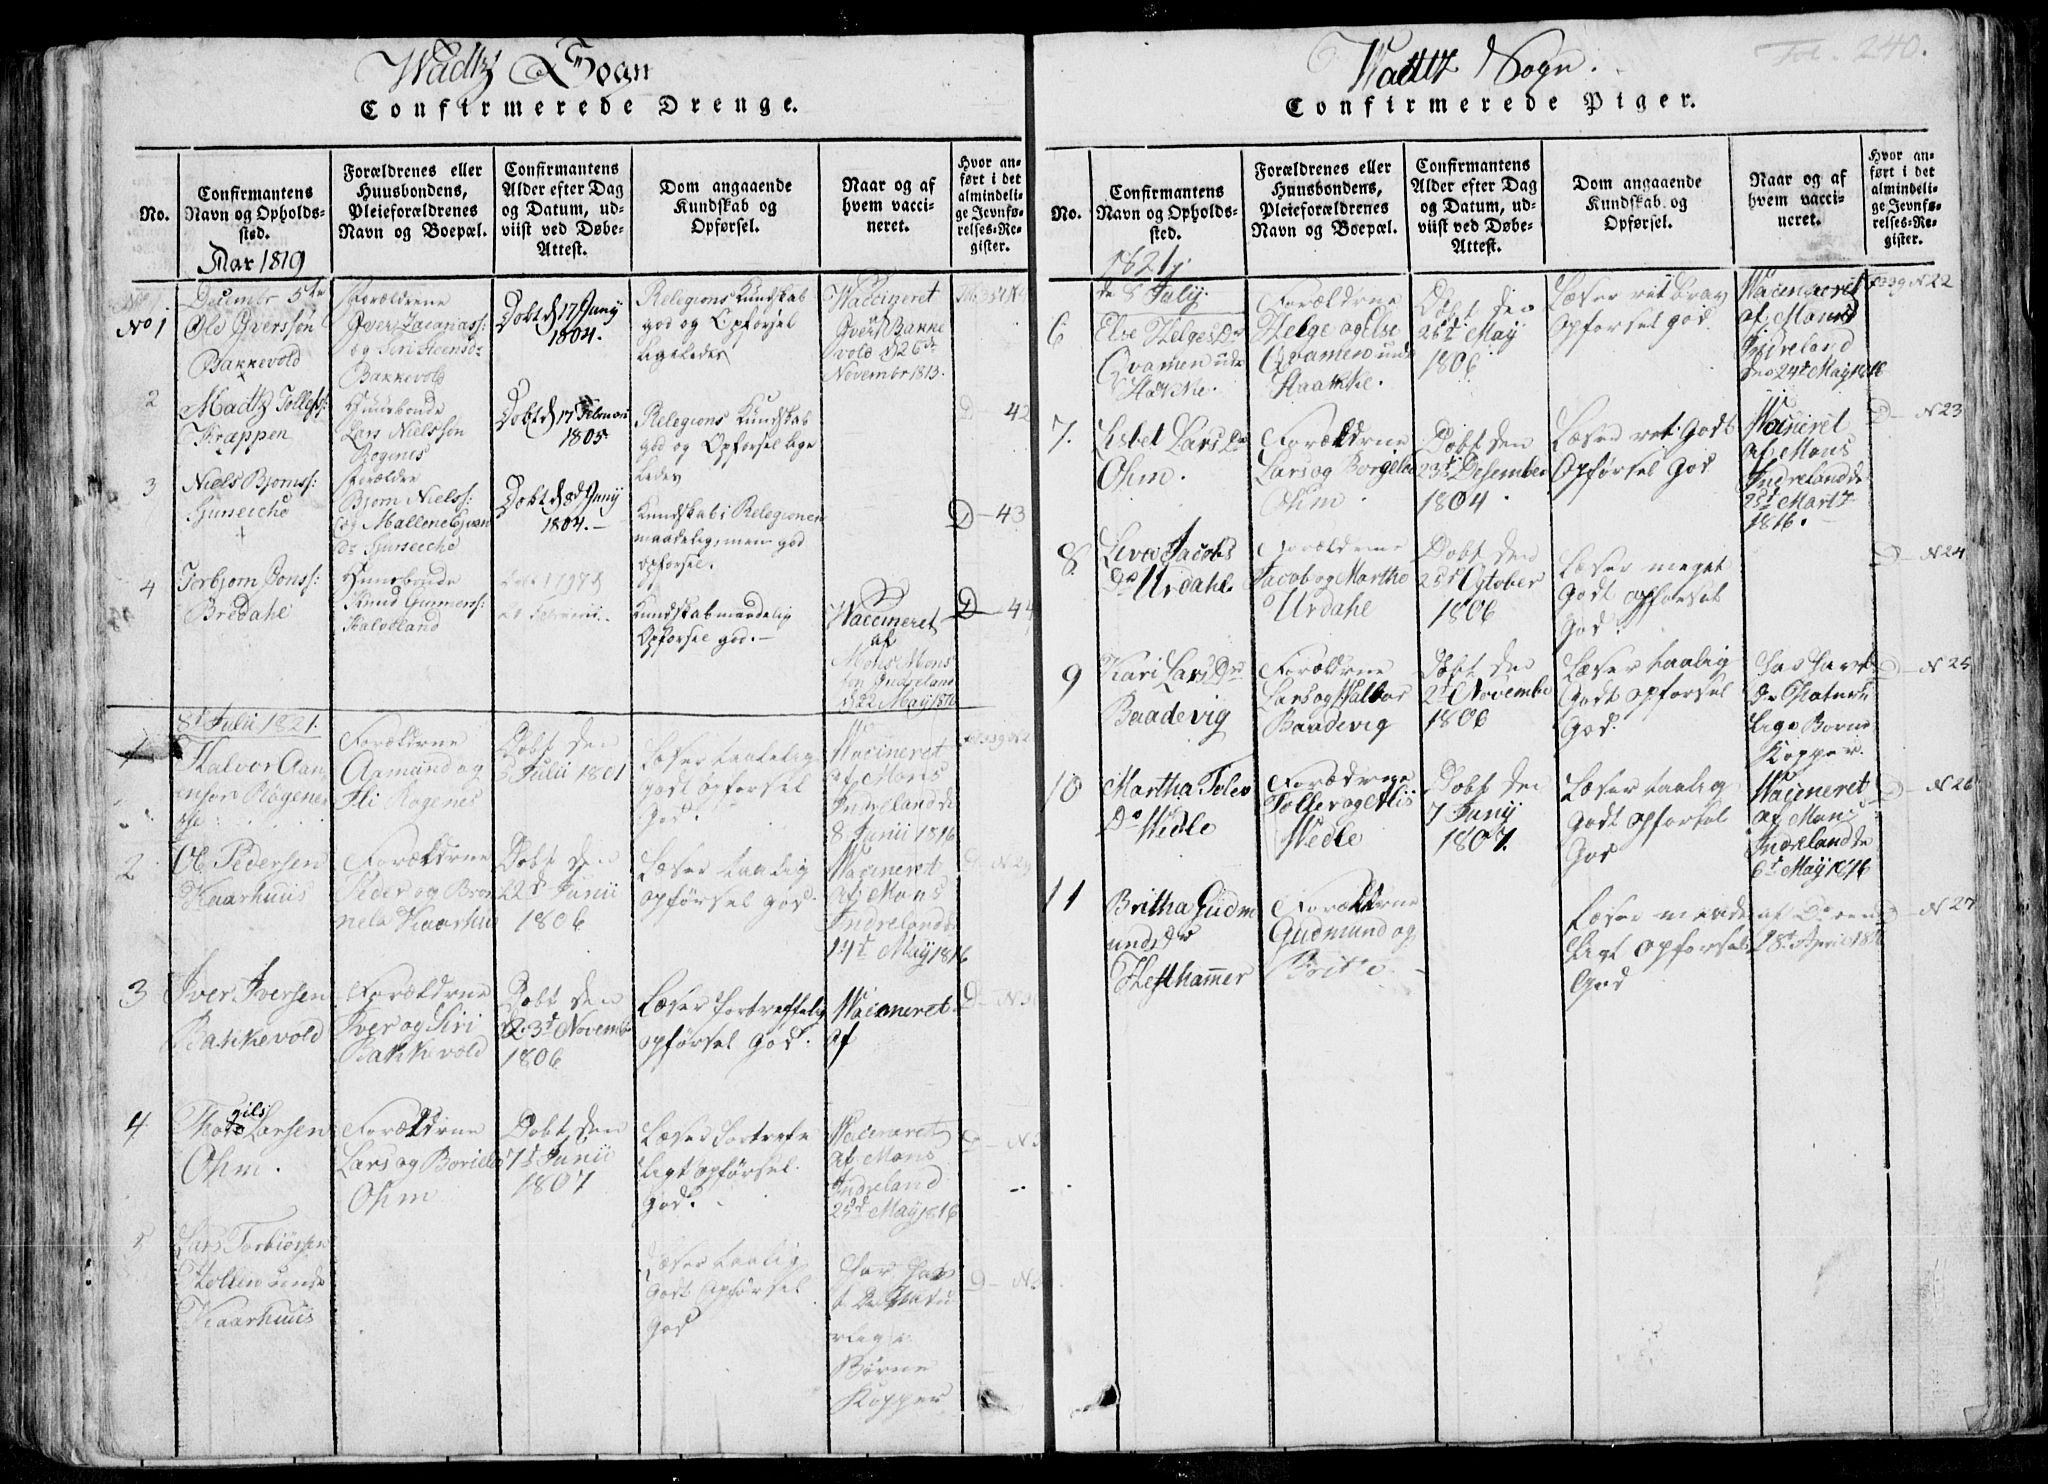 Wadtz Sogn
Confirmerede Drenge.
No.
Confirmantens
Navn og Opholds-
sted.
Forældrenes eller
Huusbondens,
Pleieforældrenes
Navn og Boepæl.
Confirmantens
Alder efter Dag
og Datum, ud-
viist ved Døbe-
Attest.
Dom angaaende
Kundskab og
Opførsel.
Naar og af
hvem vacci-
neret.
Hvor an-
ført i det
almindeli-
ge Jevnfø-
relses-Re-
gister.
Aar 1819
No 1
Decembr 5te
Ole Iverssøn
Bakkevold
Forældrene
Iver Zacariass:
og Siri Steensd:
Bakkevold
Døbt d 17 Juny
1804.
Religions Kundskab
god og Opførsel
ligeledes
Vaccineret
af
Iver Bakke
vold d 26de
Novembr 1813.
2
Madtz Tollefs:
Kræppen
Huusbonde
Lars Nielssøn
Rogenes
Døbt d 17 Februari
1805
Religions Kundskab
god og Opførsel lige
ledes
D - 42
3
Niels Bjørnss:
Gjurseiche
Forældre
Bjørn Nielss:
og Mallene Ejvan
d: Gjurseiche
Døbt d 8d Juny
1804.-
Kundskab i Religionen
maadelig, men god
opførsel.
D - 43
4
Torbjørn Jonss:
Bredahl
Huusbonde
Knud Gunners:
Halvland
Kundskab maadelig
Opførsel god.-
Vaccineret
af
Mons Mons
søn Indreland
d 22 May 1816
D - 44
8d Julii 1821.
1
Halvor Aam
Røgenes
Forældrene
Aamund og
Eli Rogenes
Døbt den
5 Julii 1801
Læser taalelig
godt opførsel
God.
Vacineret
af Mons
Indreland de
8 Junii 1816
2
Ole Pedersen
Kaarhuus
Forældrene
Peder og Bro
nela Kaarhuu
Døbt den
22d Junii
1806
Læser taalig
opførsel God.
Vacineret
af Mons
Indreland d
14d May 1816
D - N 29
3
Iver Iversen
Bakkevold
Forældrene
Iver og Siri
Bakkevold
Døbt den
23d Novemb
1806
Læser fortreffelig
opførsel God.
Vacineret
af
D - N 30
4
Thorgils Larsen
Ohm.
Forældrene
Lars og Borille
Ohm
Døbt den
7d Junii
1807
Læser fortrefe
ligt opførsel
God.
Vacineret
af Mons
Indreland
25d May 1816
D - N 3
5
Lars Torbiørsen
Hollen unde
Kaarhuus
Læser taalig
Godt opførsel
God
har hav
t de Natu
rlige
Børne
Kopper
D - N
Wadtz Sogn.
Fol. 240.
Confirmerede Piger.
No.
Confirmantens
Navn og Opholds-
sted.
Forældrenes eller
Huusbondens,
Pleieforældrenes
Navn og Boepæl.
Confirmantens
Alder efter Dag
og Datum, ud-
viist ved Døbe-
Attest.
Dom angaaende
Kundskab og
Opførsel.
Naar og af
hvem vacci-
neret.
Hvor an-
ført i det
almindeli-
ge Jevnfø-
relses-Re-
gister.
1821
de 8 July.
6
Else Helges Dr
Qvamen und
Staakke.
Forældrene
Helge og Else
Qvamen und
Staakke.
Døbt den
26d May
1806
Læser ret brav
opførsel god.
Vacineret
af Mons
Indreland
den 24d May 1816
39 N 22
7.
Lisbet Lars Dr
Ohm.
Forældrene
Lars og Borgela
Ohm
Døbt den
23d Desember
1804
Læser ret Godt
Opførsel God
Vacineret
af Mons
Indreland de
25d Marts
1816.
D - N 23
8.
Live Jacobs
Dr Urdahl.
Forældrene
Jacob og Martha
Urdahl
Døbt den
25d Octtober
1806
Læser meget
Godt opførsel
God.
D - N 24
9
Kari Lars Dr
Baadevig
Forældrene
Lars og Halbor
Baadevig
Døbt den
2d Novemb
1806
Læser taalig
Godt opførsel
God.
har havt
de Natur
lige Børne
Kopper.
D - N 25
10
Martha Tolev
Dr Wedle
Forældrene
Tollev og Elis
Wedle
Døbt den
7 Juny
1807.
Læser taalig
Godt opførsel
God
Vacineret
af Mons
Indreland de
6d May 1816
D - N 26
11
Britha Gudm
unds Dr
Hesthammer
Forældrene
Gudmund og
Britte.
Læser maade
ligt opførsel
God
af Do den
28d April 18
D - N 27